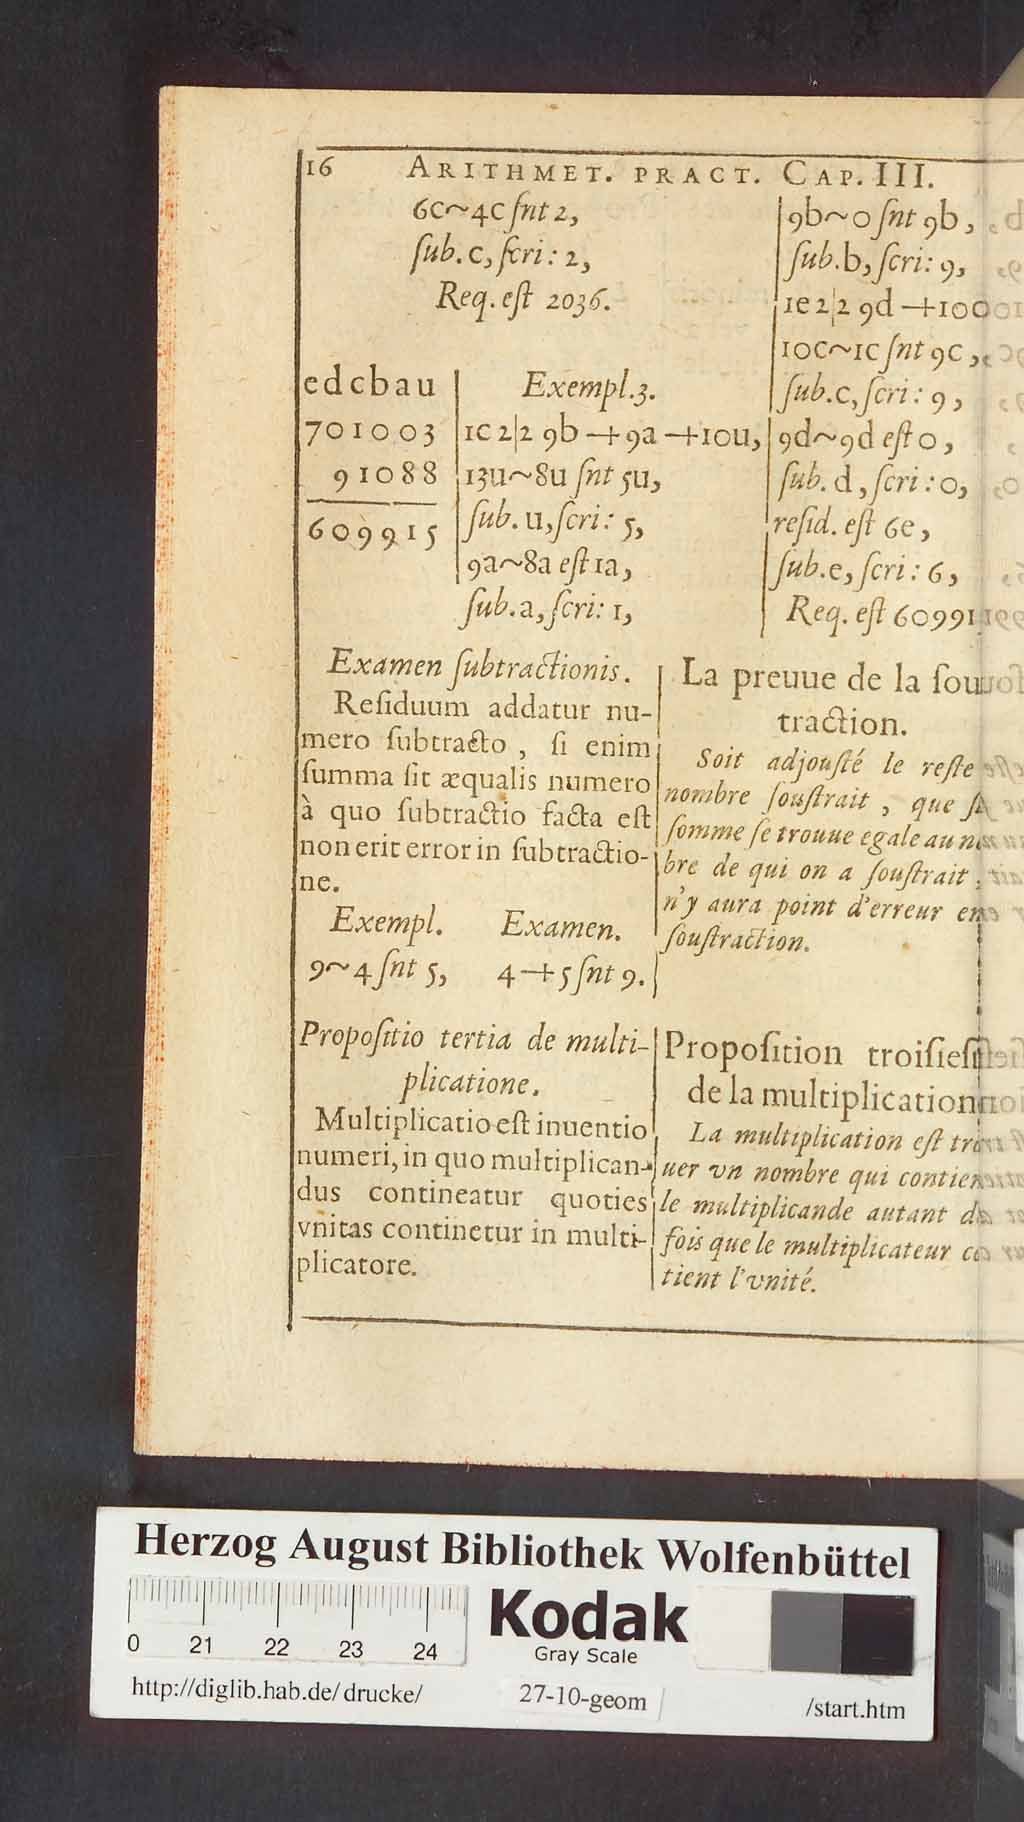 16 ARITHMET. PRACT. CAP. III.
6c~4c ſnt 2,
ſub. c, ſcri: 2,
Req. eſt 2036.
9b~0 ſnt 9b,
ſub. b, ſcri: 9,
1e 2|2 9d -+100
10c~1c ſnt 9c,
ſub. c, ſcri: 9,
9d~9d eſt 0,
ſub. d, ſcri: 0,
reſid. eſt 6e,
ſub. e, ſcri: 6,
Req. eſt 60991
edcbau
701003
91088
609915
Exempl. 3.
1c 2|2 9b -+9a -+10u,
13u~8u ſnt 5u,
ſub. u, ſcri: 5,
9a~8a eſt 1a,
ſub. a, ſcri: 1,
Examen ſubtractionis.
Reſiduum addatur nu-
mero ſubtracto, ſi enim
ſumma ſit æqualis numero
à quo ſubtractio facta eſt
non erit error in ſubtractio-
ne.
Exempl. Examen.
9~4 ſnt 5, 4-+5 ſnt 9.
La preuue de la ſou
traction.
Soit adjouſté le reſte
nombre ſouſtrait, que ſi
ſomme ſe trouue egale au
bre de qui on a ſouſtrait,
n'y aura point d'erreur en
ſouſtraction.
Propoſitio tertia de multi-
plicatione.
Multiplicatio eſt inuentio
numeri, in quo multiplican-
dus contineatur quoties
vnitas continetur in multi-
plicatore.
Propoſition troiſieſ
de la multiplication
La multiplication eſt
uer vn nombre qui contien
le multiplicande autant
fois que le multiplicateur
tient l'vnité.
Herzog August Bibliothek Wolfenbüttel
0 21 22 23 24
Kodak
Gray Scale
http://diglib.hab.de/drucke/ 27-10-geom /start.htm